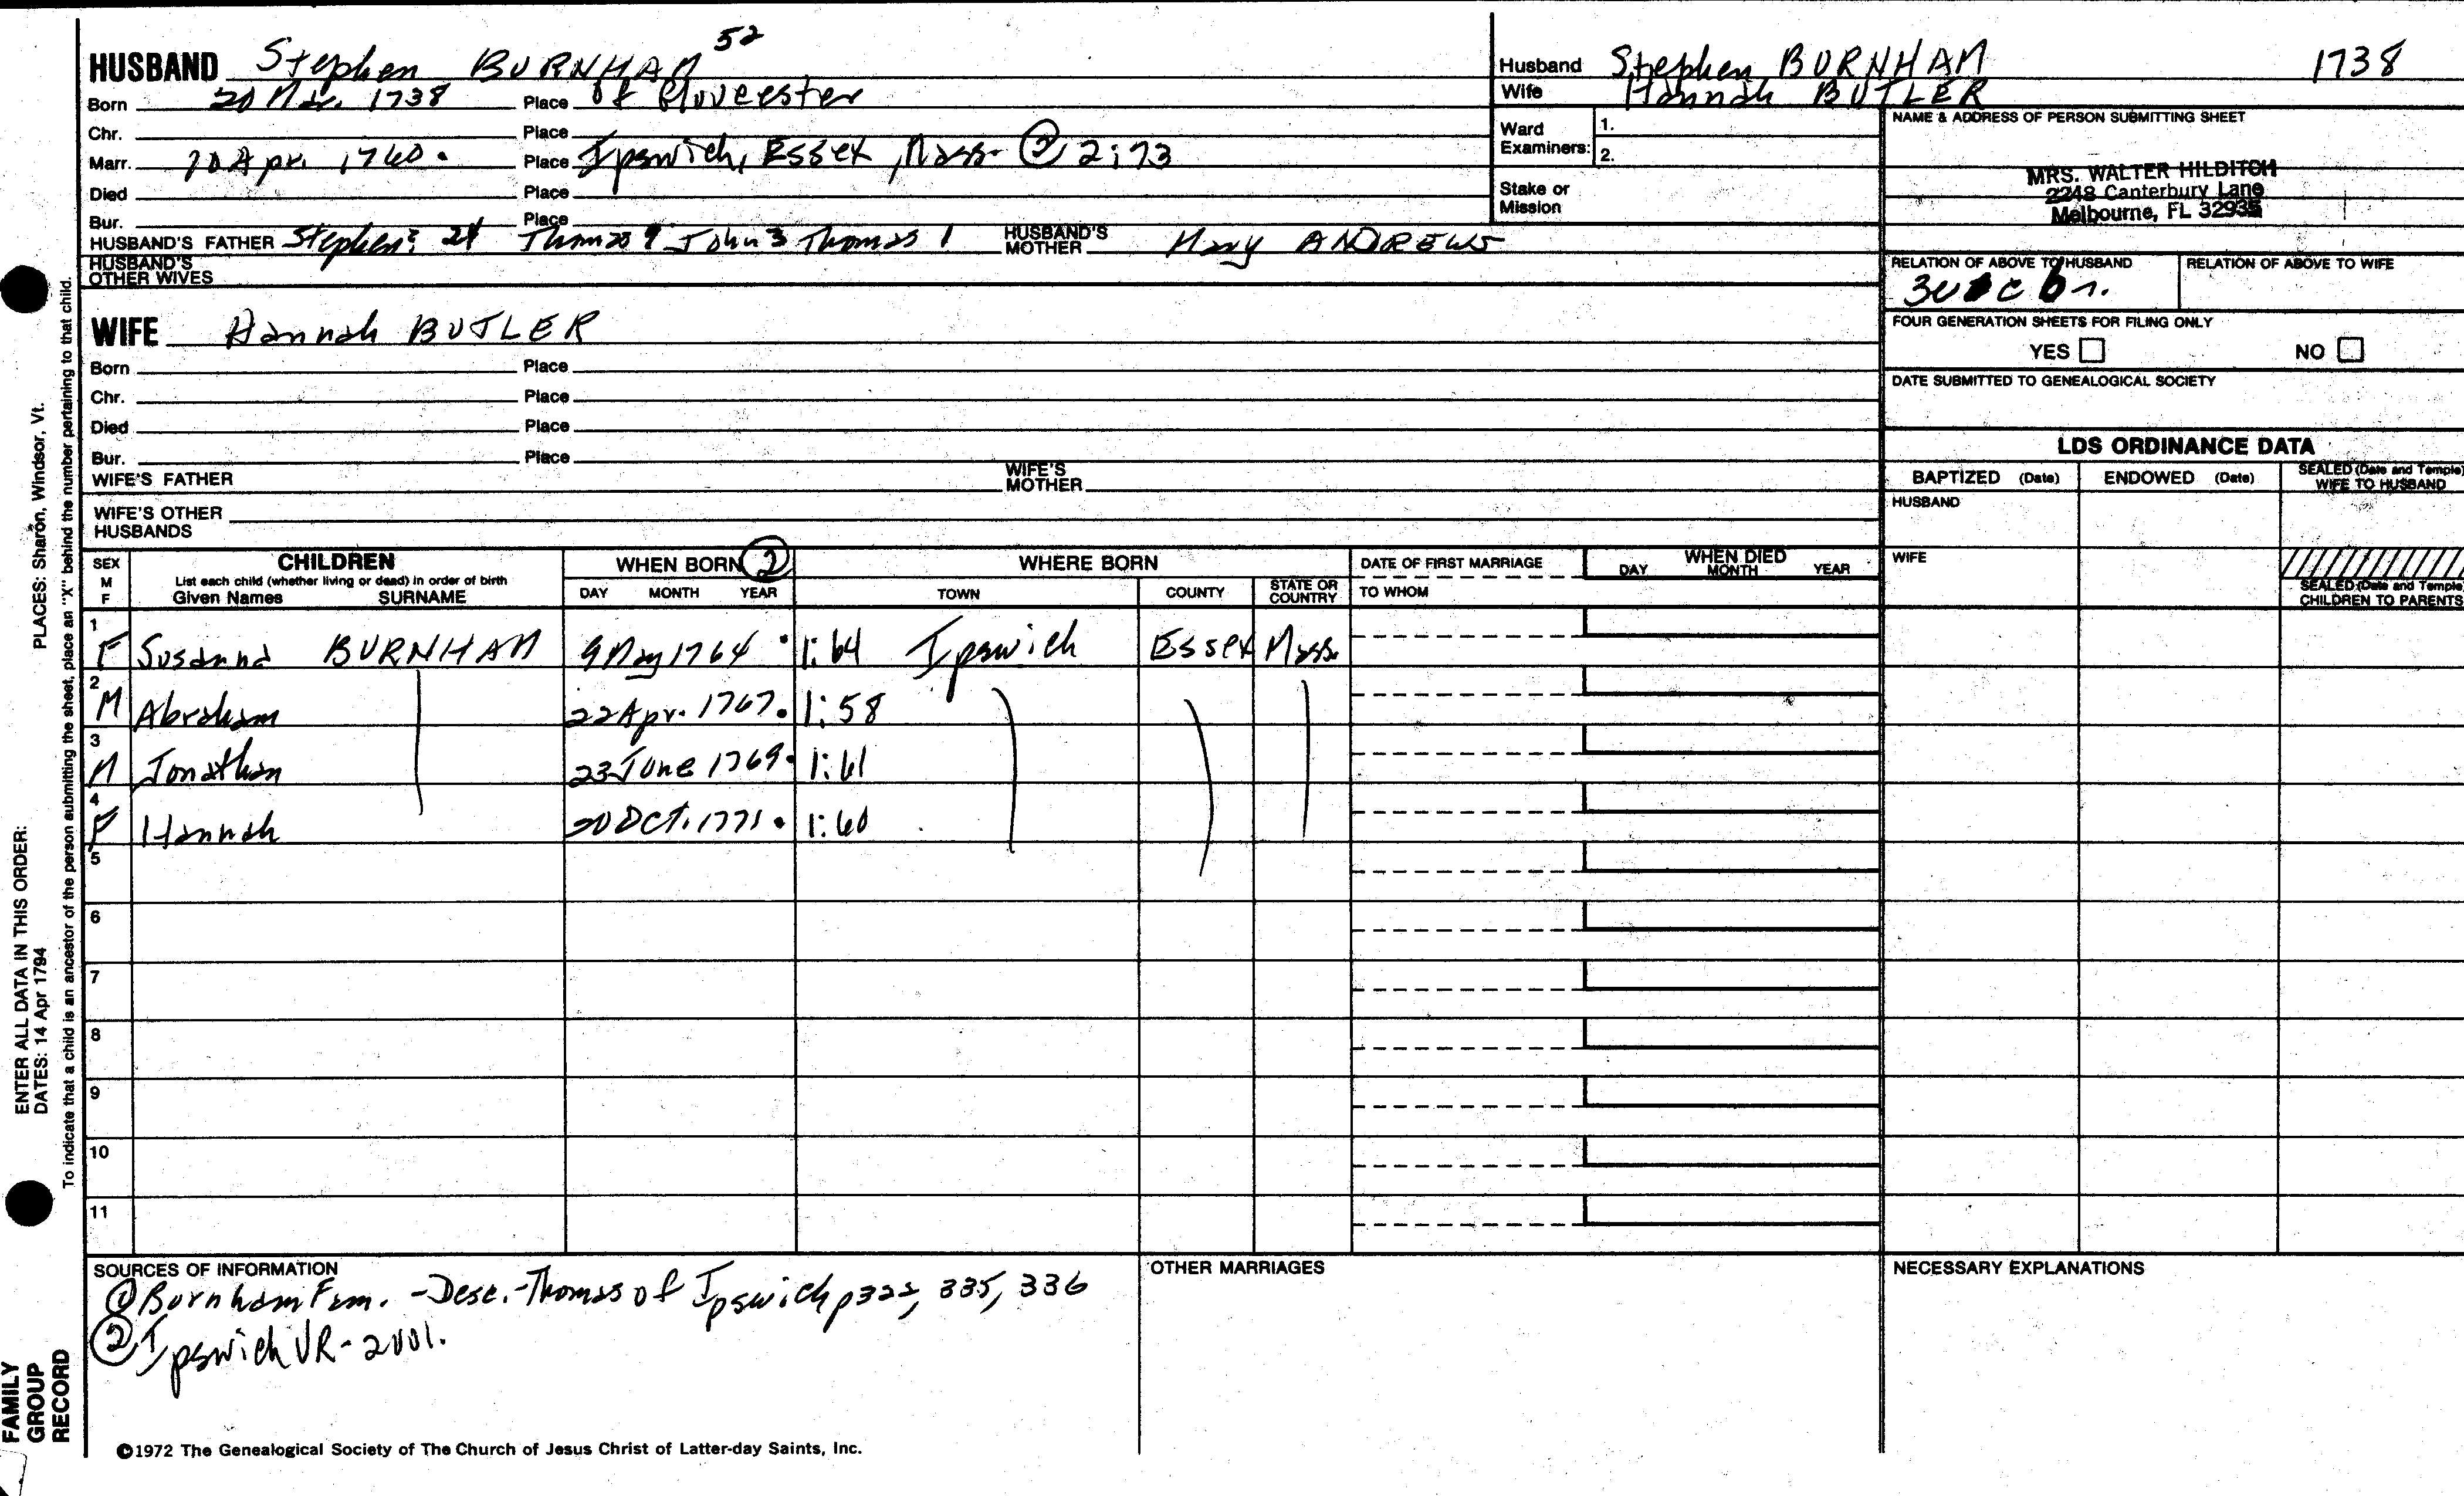 HUSBAND Stephen BURNHAM 52
Born 20 Mar. 1738 Place of Gloucester
Chr. Place
Marr. 10 Apr. 1760. Place Ipswich, Essex, Mass. ② 2:73
Died Place
Bur. Place
HUSBAND'S FATHER Stephen 24 Thomas 9 John 3 Thomas 1 HUSBAND'S MOTHER Mary ANDREWS
HUSBAND'S OTHER WIVES
WIFE Hannah BUTLER
Born Place
Chr. Place
Died Place
Bur. Place
WIFE'S FATHER WIFE'S MOTHER
WIFE'S OTHER HUSBANDS
Husband Stephen BURNHAM 1738
Wife Hannah BUTLER
Ward Examiners: 1. 2.
Stake or Mission
NAME & ADDRESS OF PERSON SUBMITTING SHEET
MRS. WALTER HILDITCH
2248 Canterbury Lane
Melbourne, FL 32935
RELATION OF ABOVE TO HUSBAND RELATION OF ABOVE TO WIFE
FOUR GENERATION SHEETS FOR FILING ONLY
YES NO
DATE SUBMITTED TO GENEALOGICAL SOCIETY
LDS ORDINANCE DATA
BAPTIZED (Date) ENDOWED (Date) SEALED (Date and Temple) WIFE TO HUSBAND
HUSBAND
WIFE
SEALED (Date and Temple) CHILDREN TO PARENTS
SEX M F CHILDREN WHEN BORN ② WHERE BORN DATE OF FIRST MARRIAGE WHEN DIED
List each child (whether living or dead) in order of birth
Given Names SURNAME DAY MONTH YEAR TOWN COUNTY STATE OR COUNTRY TO WHOM DAY MONTH YEAR
1 F Susanna BURNHAM 9 May 1764 . 1:64 Ipswich Essex Mass.
2 M Abraham 22 Apr. 1767. 1:58
3 M Jonathan 23 June 1769. 1:61
4 F Hannah 20 Oct. 1771. 1:60
5
6
7
8
9
10
11
SOURCES OF INFORMATION
① Burnham Fam. - Desc. - Thomas of Ipswich p322, 335, 336
② Ipswich VR - 2001.
OTHER MARRIAGES
NECESSARY EXPLANATIONS
©1972 The Genealogical Society of The Church of Jesus Christ of Latter-day Saints, Inc.
FAMILY GROUP RECORD
ENTER ALL DATA IN THIS ORDER:
DATES: 14 Apr 1794
PLACES: Sharon, Windsor, Vt.
To indicate that a child is an ancestor of the person submitting the sheet, place an "X" behind the number pertaining to that child.